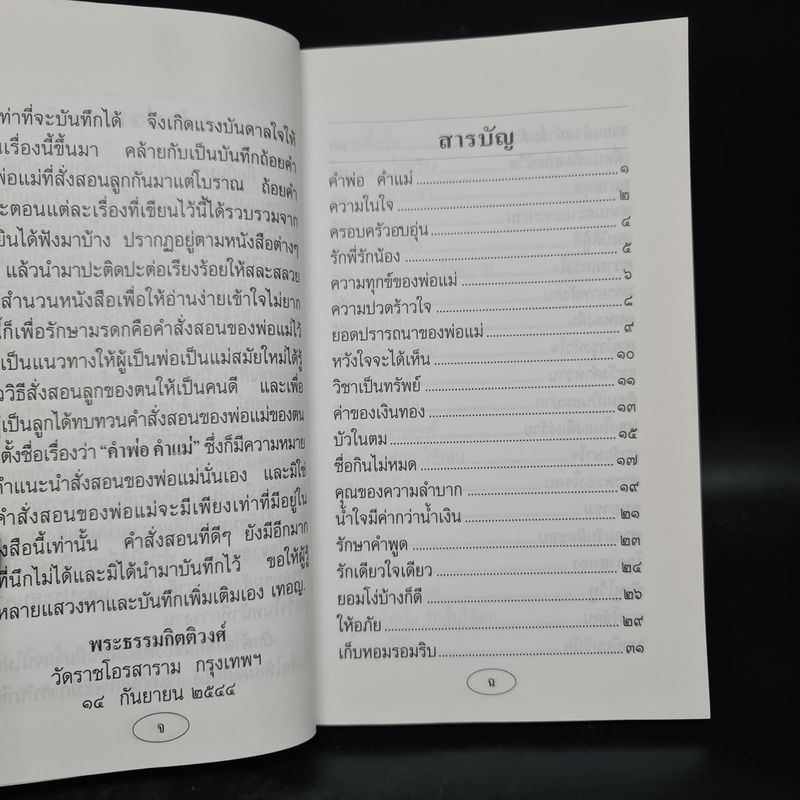 ท่าที่จะบันทึกได้ จึงเกิดแรงบันดาลใจให้
เรื่องนี้ขึ้นมา คล้ายกับเป็นบันทึกถ้อยคำ
พ่อแม่ที่สั่งสอนลูกกันมาแต่โบราณ ถ้อยคำ
ะตอนแต่ละเรื่องที่เขียนไว้นี้ได้รวบรวมจาก
ยินได้ฟังมาบ้าง ปรากฏอยู่ตามหนังสือต่างๆ
แล้วนำมาปะติดปะต่อเรียงร้อยให้สละสลวย
สำนวนหนังสือเพื่อให้อ่านง่ายเข้าใจไม่ยาก
ก็เพื่อรักษามรดกคือคำสั่งสอนของพ่อแม่ไว้
เป็นแนวทางให้ผู้เป็นพ่อเป็นแม่สมัยใหม่ได้รู้
วิธีสั่งสอนลูกของตนให้เป็นคนดี และเพื่อ
เป็นลูกได้ทบทวนคำสั่งสอนของพ่อแม่ของตน
ตั้งชื่อเรื่องว่า “คำพ่อ คำแม่” ซึ่งก็มีความหมาย
คำแนะนำสั่งสอนของพ่อแม่นั่นเอง และมิใช่
คำสั่งสอนของพ่อแม่จะมีเพียงเท่าที่มีอยู่ใน
งสือนี้เท่านั้น คำสั่งสอนที่ดีๆ ยังมีอีกมาก
ที่นึกไม่ได้และมิได้นำมาบันทึกไว้ ขอให้ผู้รู้
หลายแสวงหาและบันทึกเพิ่มเติมเอง เทอญ.
พระธรรมกิตติวงศ์
วัดราชโอรสาราม กรุงเทพฯ
๑๔ กันยายน ๒๕๔๔
จ
สารบัญ
คำพ่อ คำแม่ ๑
ความในใจ ๒
ครอบครัวอบอุ่น ๔
รักพี่รักน้อง ๕
ความทุกข์ของพ่อแม่ ๖
ความปวดร้าวใจ ๘
ยอดปรารถนาของพ่อแม่ ๙
หวังใจจะได้เห็น ๑๐
วิชาเป็นทรัพย์ ๑๑
ค่าของเงินทอง ๑๓
บัวในตม ๑๕
ซื่อกินไม่หมด ๑๗
คุณของความลำบาก ๑๙
น้ำใจมีค่ากว่าน้ำเงิน ๒๑
รักษาคำพูด ๒๓
รักเดียวใจเดียว ๒๔
ยอมโง่บ้างก็ดี ๒๖
ให้อภัย ๒๙
เก็บหอมรอมริบ ๓๑
ฉ